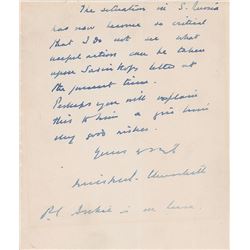 The situation in S. Russia
has now become so critical
that I do not see what
useful action can be taken
upon Savinkofs letter at
the present time.
Perhaps you will explain
this to him & give him
my good wishes.
Yours
Winston S. Churchill
is on leave.